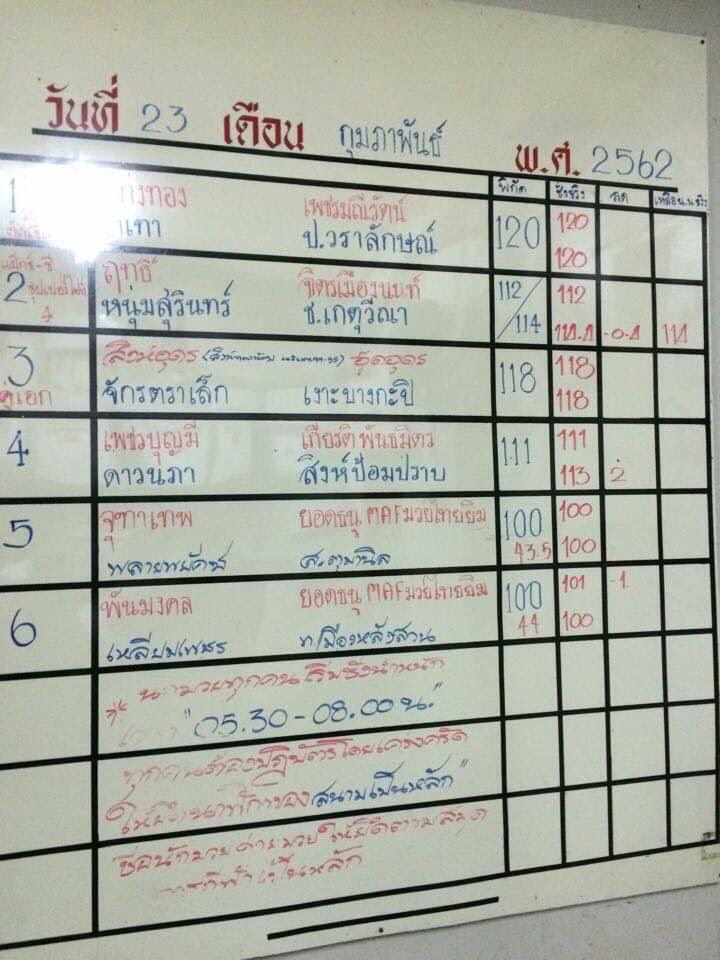 วันที่ 23 เดือน กุมภาพันธ์ พ.ศ. 2562
พิกัด ชั่งจริง ลด
1 เพชรมณีรัตน์ 120 120
ป.วราลักษณ์ 120
2 ฤทธิ์ จิตรเมืองนนท์ 112/114 112
4 หนุ่มสุรินทร์ ช.เกตุวีณา 114.4 -0.4 114
3 สิงห์อุดร ชูดอุดร 118 118
คู่เอก จักรตราเล็ก เงาะบางกะปิ 118
4 เพชรบุญมี เกียรติพันธมิตร 111 111
ดาวนภา สิงห์ป้อมปราบ 113 2
5 จุฑาเทพ ยอดธนู MAFมวยไทยยิม 100 100
43.5 100
6 พันมงคล ยอดธนู MAFมวยไทยยิม 100 101 -1
เหลี่ยมเพชร ท.เมืองหลังสวน 44 100
นักมวยทุกคน เริ่มชั่งน้ำหนัก
"05.30-08.00น."
ทุกคนต้องปฏิบัติโดยเคร่งครัด
สนามเป็นหลัก"
ชื่อนักมวย ค่ายมวย ให้ยึดตามสมุด
เป็นหลัก